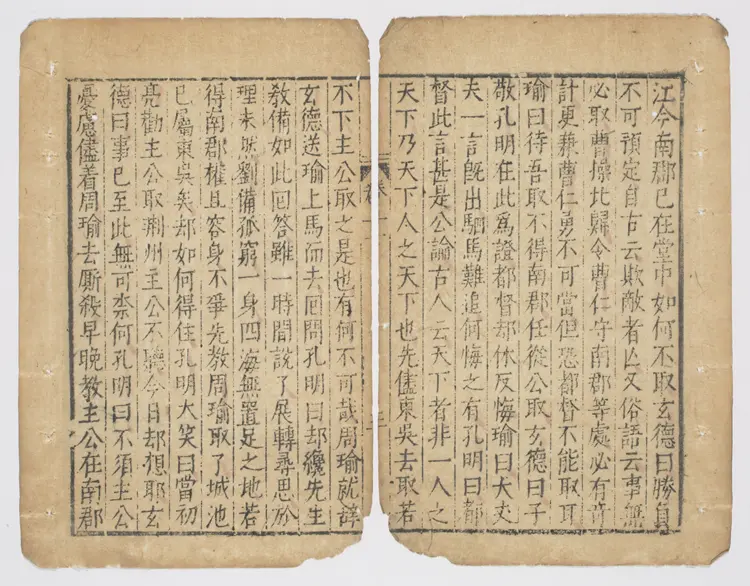 江今南郡已在掌中如何不取玄德曰勝負
不可預定自古云欺敵者亡又俗語云事無
必取曹操北歸令曹仁守南郡等處必有竒
計更兼曹仁勇不可當但恐都督不能取耳
瑜曰待吾取不得南郡任從公取玄德曰子
敬孔明在此爲證都督却休反悔瑜曰大丈
夫一言旣出駟馬難追何悔之有孔明曰都
督此言甚是公論古人云天下者非一人之
天下乃天下人之天下也先儘東吳去取若
卷
不下主公取之是也有何不可哉周瑜就辤
玄德送瑜上馬而去囬問孔明曰却纔先生
敎備如此囬答雖一時間說了展轉尋思於
理未然劉備孤窮一身四海無置足之地若
得南郡權且容身不爭先教周瑜取了城池
已屬東吳矣却如何得住孔明大笑曰當初
亮勸主公取荆州主公不聽今日却想耶玄
德曰事已至此無可柰何孔明曰不須主公
憂慮儘着周瑜去厮殺早晚教主公在南郡